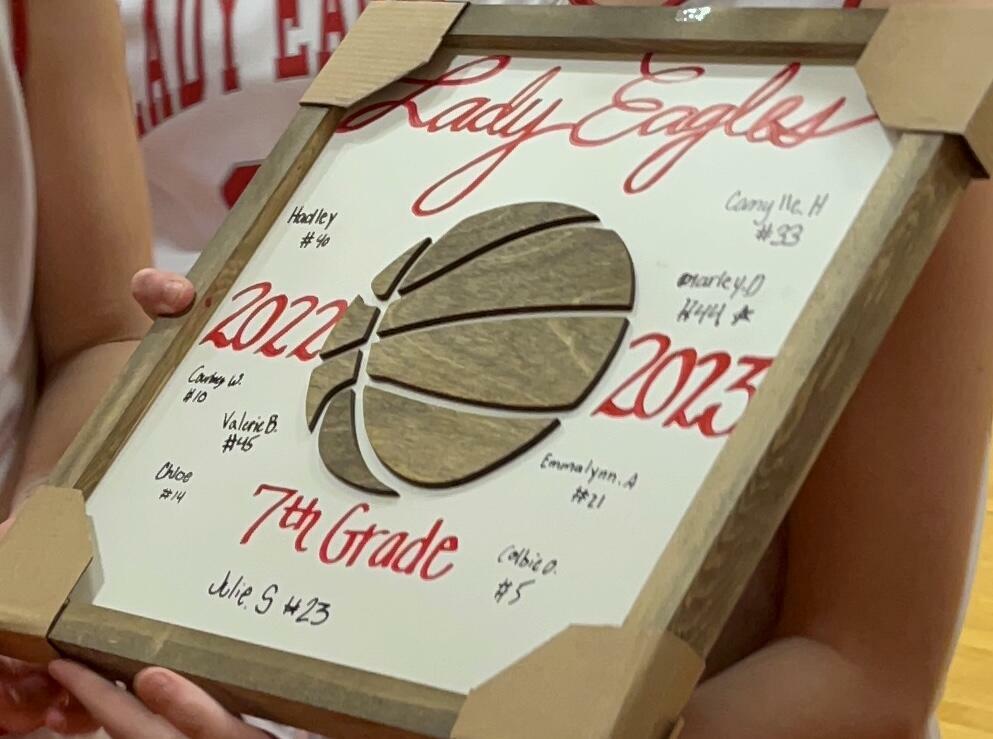 LADY EA
Lady Eagles
Hadley
#40
Camylle. H
#33
Marley.D
#44
2022
2023
Courtney W.
#10
Valerie B.
#45
Chloe
#14
Emmalynn. A
#21
7th Grade
Colbie O.
#5
Julie. S #23